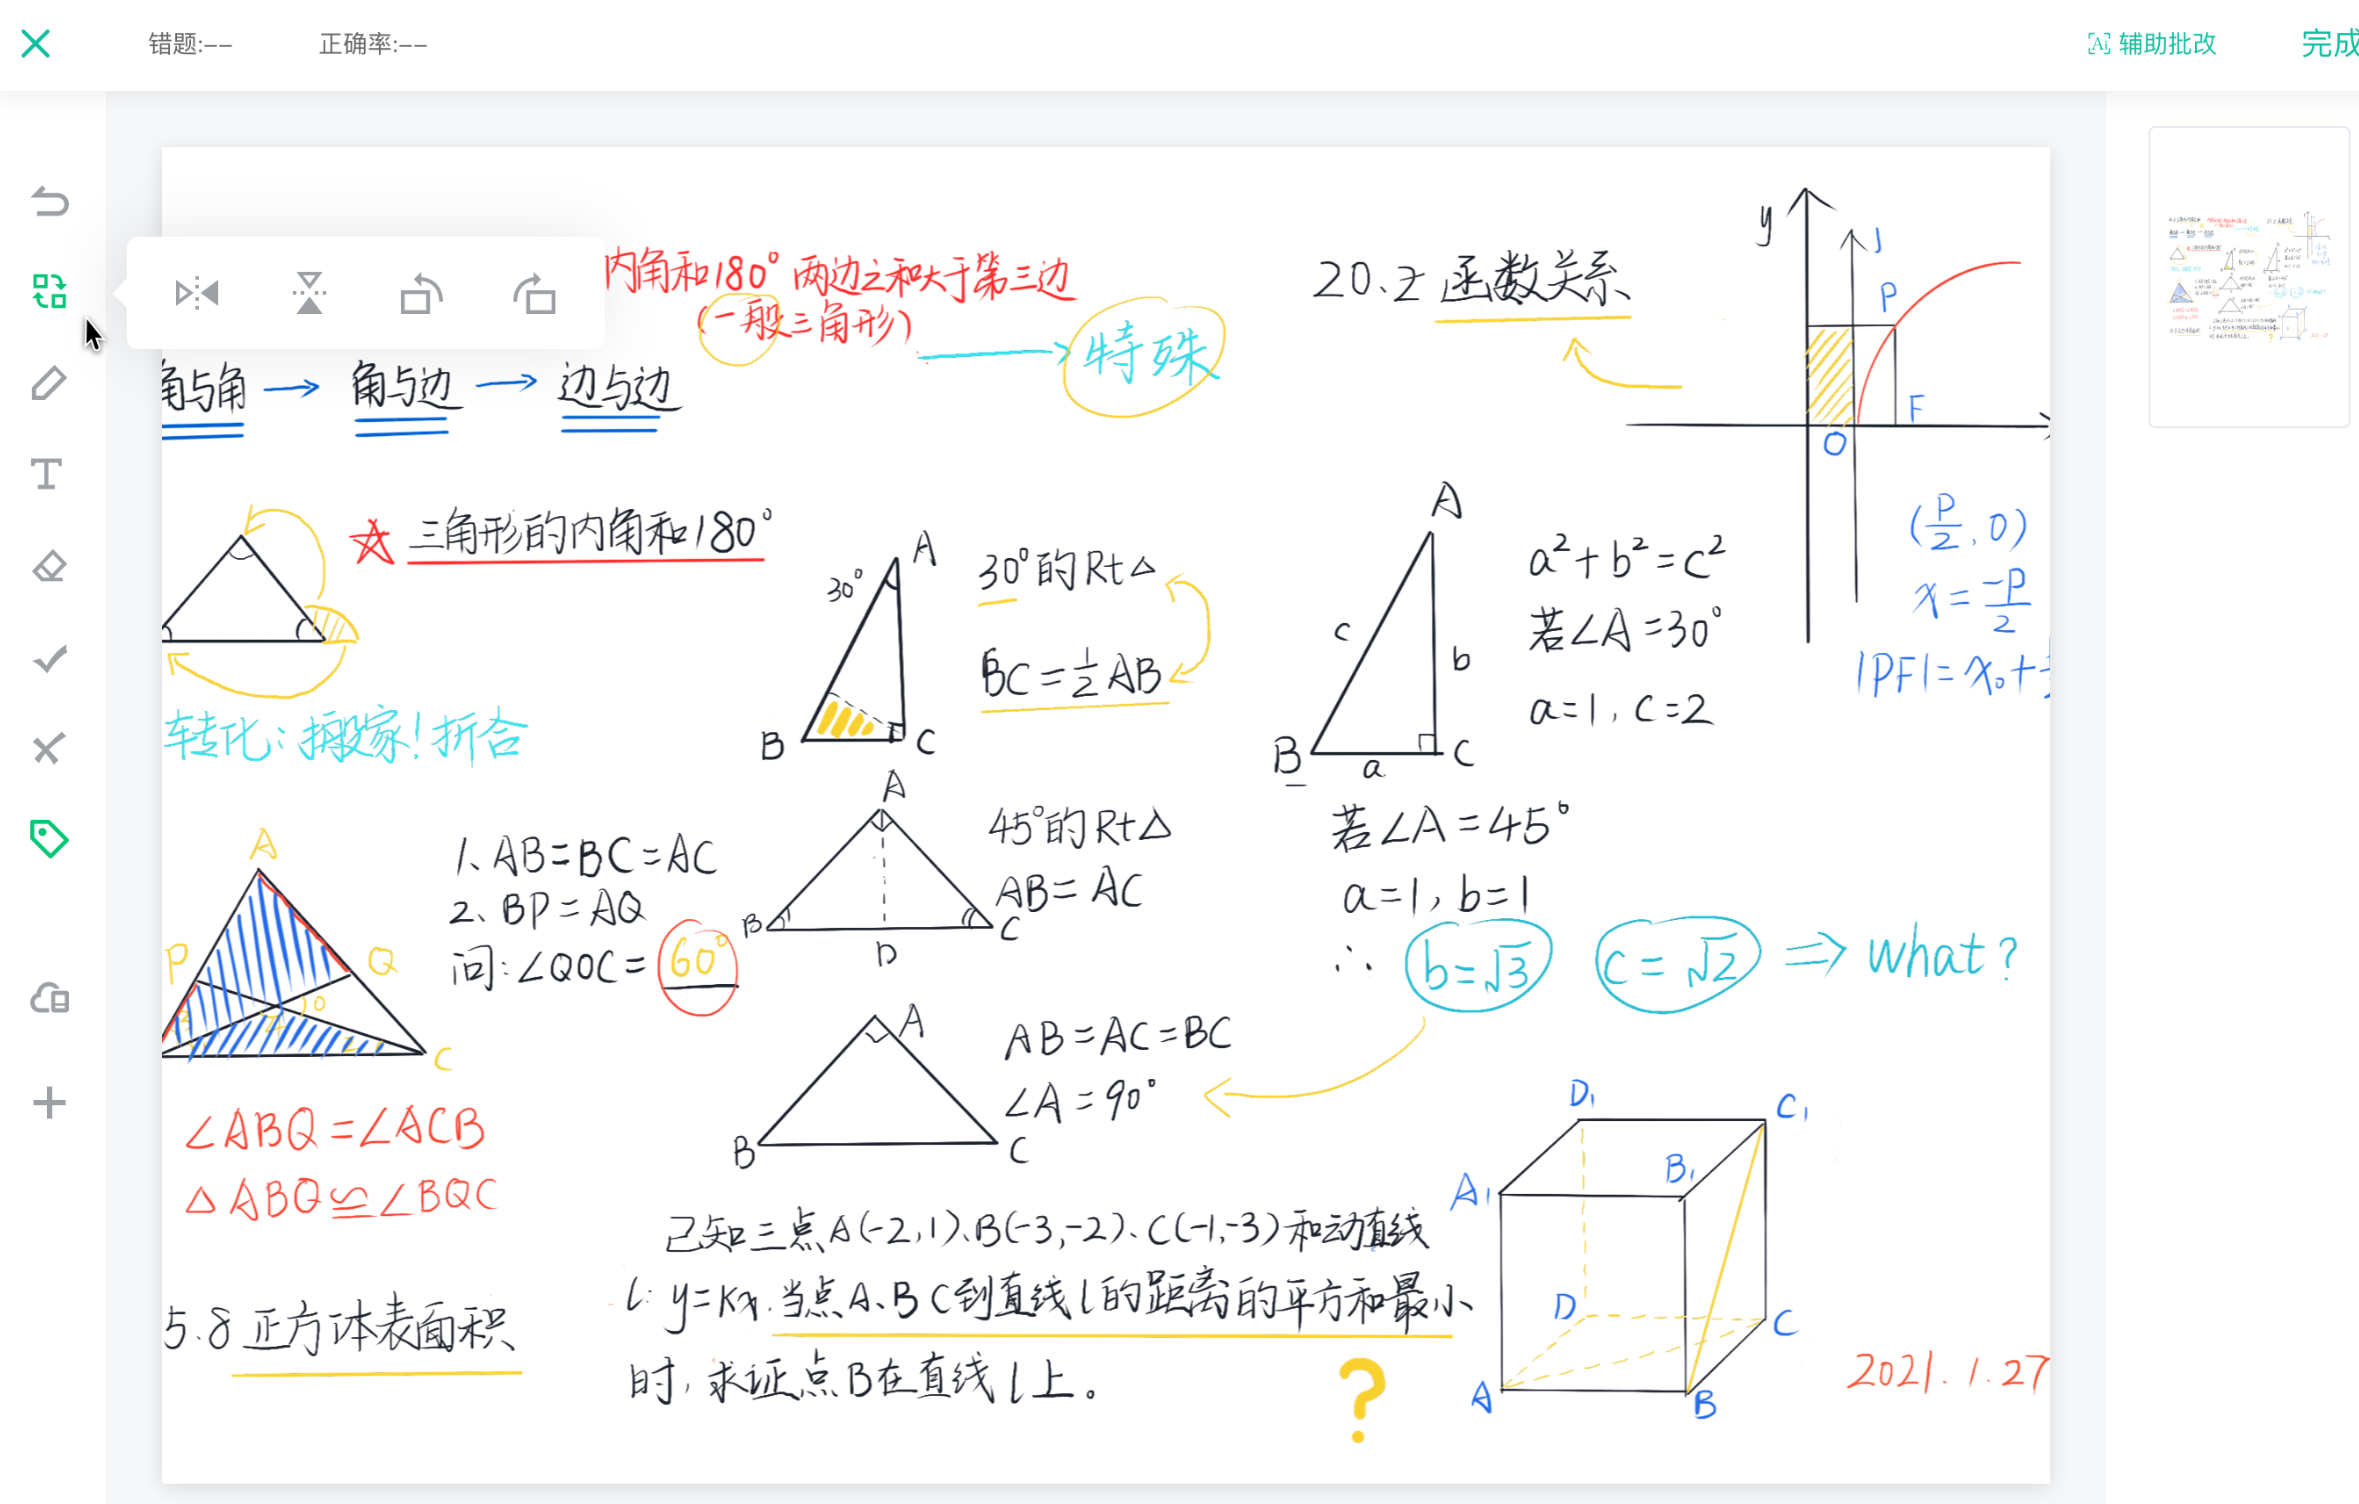 错题:--
正确率:--
Ai 辅助批改
完成
内角和180° 两边之和大于第三边
(一般三角形)
特殊
角与角 → 角与边 → 边与边
三角形的内角和180°
转化:搬家!折合
A
30°
B
C
30°的Rt△
BC=½AB
20.2 函数关系
y
J
P
F
O
(P/2,0)
x=-P/2
|PF|=x₀+
A
c
b
B
a
C
a²+b²=c²
若∠A=30°
a=1,c=2
A
P
Q
O
C
1、AB=BC=AC
2、BP=AQ
问:∠QOC=60°
∠ABQ=∠ACB
△ABQ≌∠BQC
A
B
D
C
45°的Rt△
AB=AC
若∠A=45°
a=1,b=1
∴ b=√3 c=√2 ⇒ what?
A
B
C
AB=AC=BC
∠A=90°
5.8 正方体表面积
已知三点A(-2,1)、B(-3,-2)、C(-1,-3)和动直线
l:y=kx.当点A、B C到直线l的距离的平方和最小
时,求证点B在直线l上。
?
D₁
C₁
A₁
B₁
D
C
A
B
2021.1.27